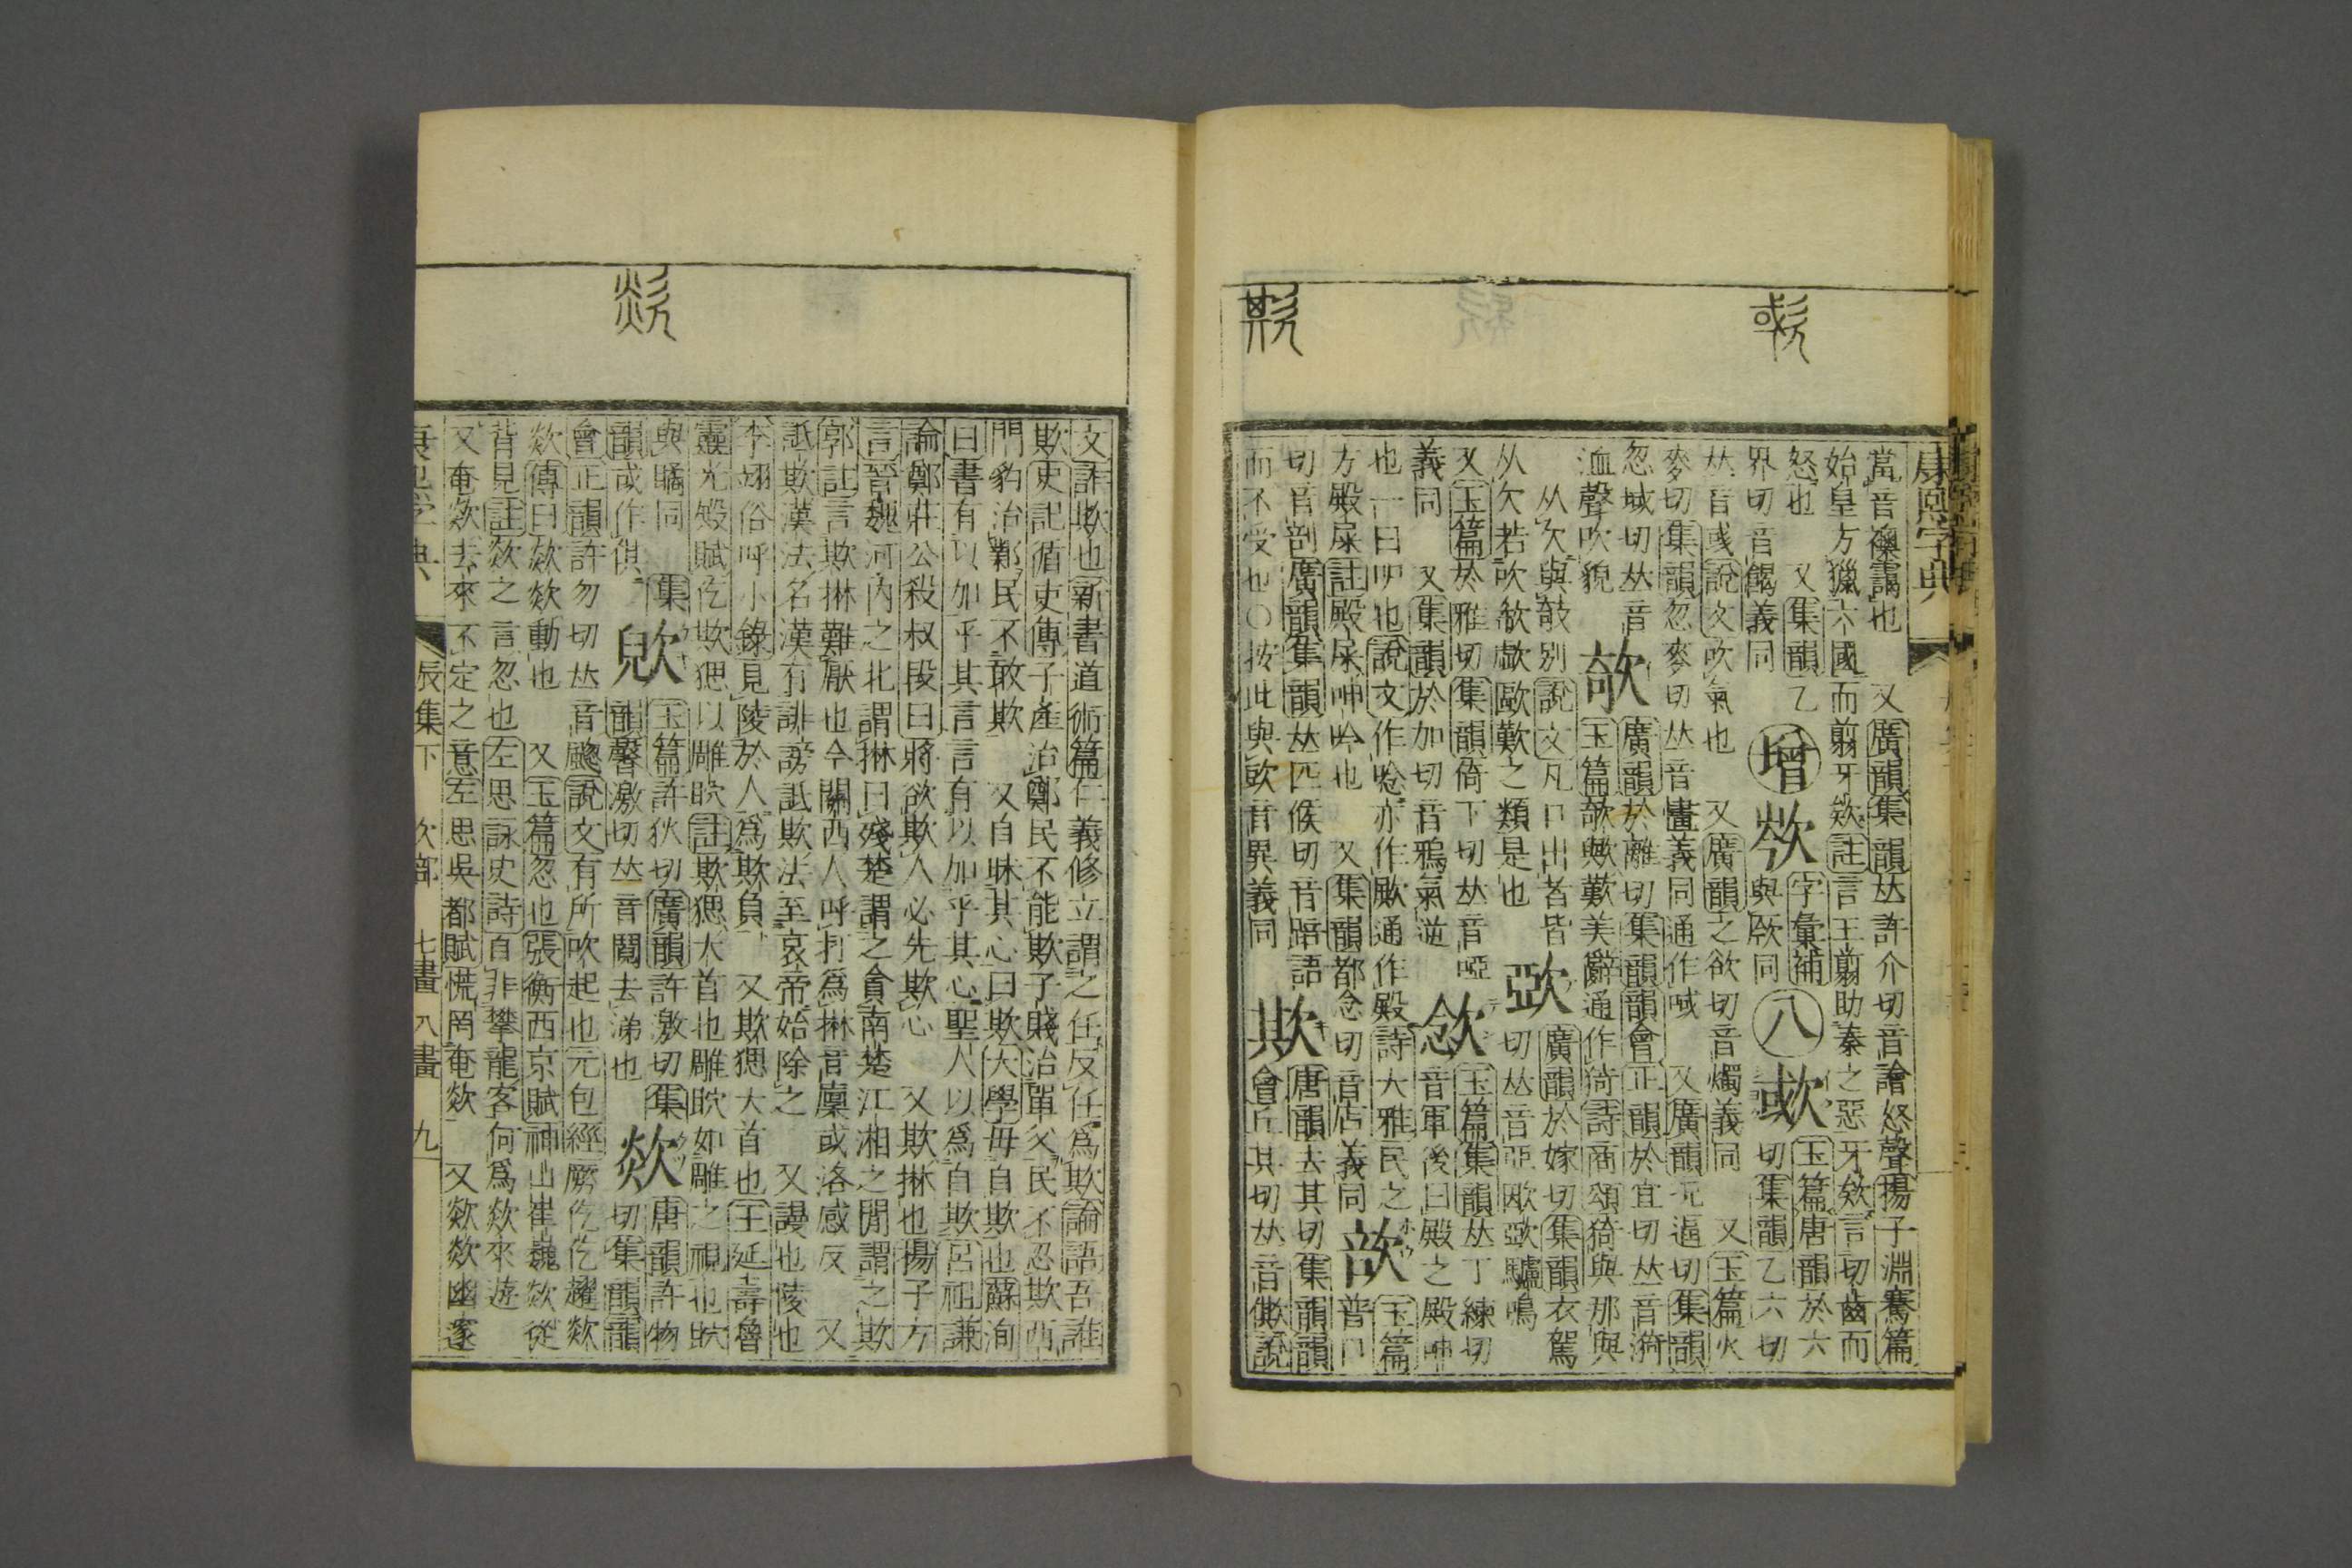 康熙字典
當音㰿譪也 又廣韻集韻𠀤許介切音譮怒聲揚子淵騫篇
始皇方獵六國而翦牙欸註言王翦助秦之惡牙欸言切齒而
怒也 又集韻乙
界切音餲義同
增
字彙補
與欣同
八
玉篇唐韻於六
切集韻乙六切
𠀤音彧說文吹氣也 又廣韻之欲切音燭義同 又玉篇火
麥切集韻忽麥切𠀤音㦎義同通作㖪 又廣韻況逼切集韻
忽域切𠀤音
洫聲吹貌
欹
廣韻於離切集韻韻會正韻於宜切𠀤音漪
玉篇欹歟歎美辭通作猗詩商頌猗與那與
从欠與攲別說文凡口出者皆
从欠若吹欷歔歐歎之類是也
廣韻於嫁切集韻衣駕
切𠀤音亞歐驢鳴
又玉篇於雅切集韻倚下切𠀤音啞
義同 又集韻於加切音鴉氣逆
玉篇集韻𠀤丁練切
音軍後曰殿之殿呻
也一曰吚也說文作唸亦作通作殿詩大雅民之
方殿屎註殿屎呻吟也 又集韻都念切音店義同
玉篇
普口
切音剖廣韻集韻𠀤匹候切音踣語
而不受也○按此與音異義同
欺
唐韻去其切集韻韻
會丘其切𠀤音僛說
文詐欺也新書道術篇仁義修立謂之任反任爲欺論語吾誰
欺史記循吏傳子產治鄭民不能欺子賤治單父民不忍欺西
門豹治鄴民不敢欺 又自昧其心曰欺大學毋自欺也蘇洵
曰書有以加乎其言言有以加乎其心聖人以爲自欺呂祖謙
論鄭莊公殺叔段曰將欲欺人必先欺心 又欺㨆也揚子方
言晉魏河內之北謂㨆曰殘楚謂之貪南楚江湘之閒謂之欺
郭註言欺㨆難厭也今關西人呼打爲㨆音廩或洛感反 又
詆欺漢法名漢有誹謗詆欺法至哀帝始除之 又謾也陵也
李翊俗呼小錄見陵於人爲欺負 又欺㥸大首也王延壽魯
靈光殿賦仡欺㥸以鵰䀪註欺㥸大首也鵰䀪如鵰之視也䀪
與瞲同
集
韻或作倛
玉篇許狄切廣韻許激切集
韻馨激切𠀤音鬩去涕也
欻
唐韻許物
切集韻韻
會正韻許勿切𠀤音颮說文有所吹起也元包經仡仡趯欻
欻傳曰欻欻動也 又玉篇忽也張衡西京賦神山崔巍欻從
背見註欻之言忽也左思詠史詩自非攀龍客何爲欻來遊
又奄欻去來不定之意左思吳都賦慌罔奄欻 又欻欻幽邃
康熙字典 辰集下 欠部 七畫 八畫 九